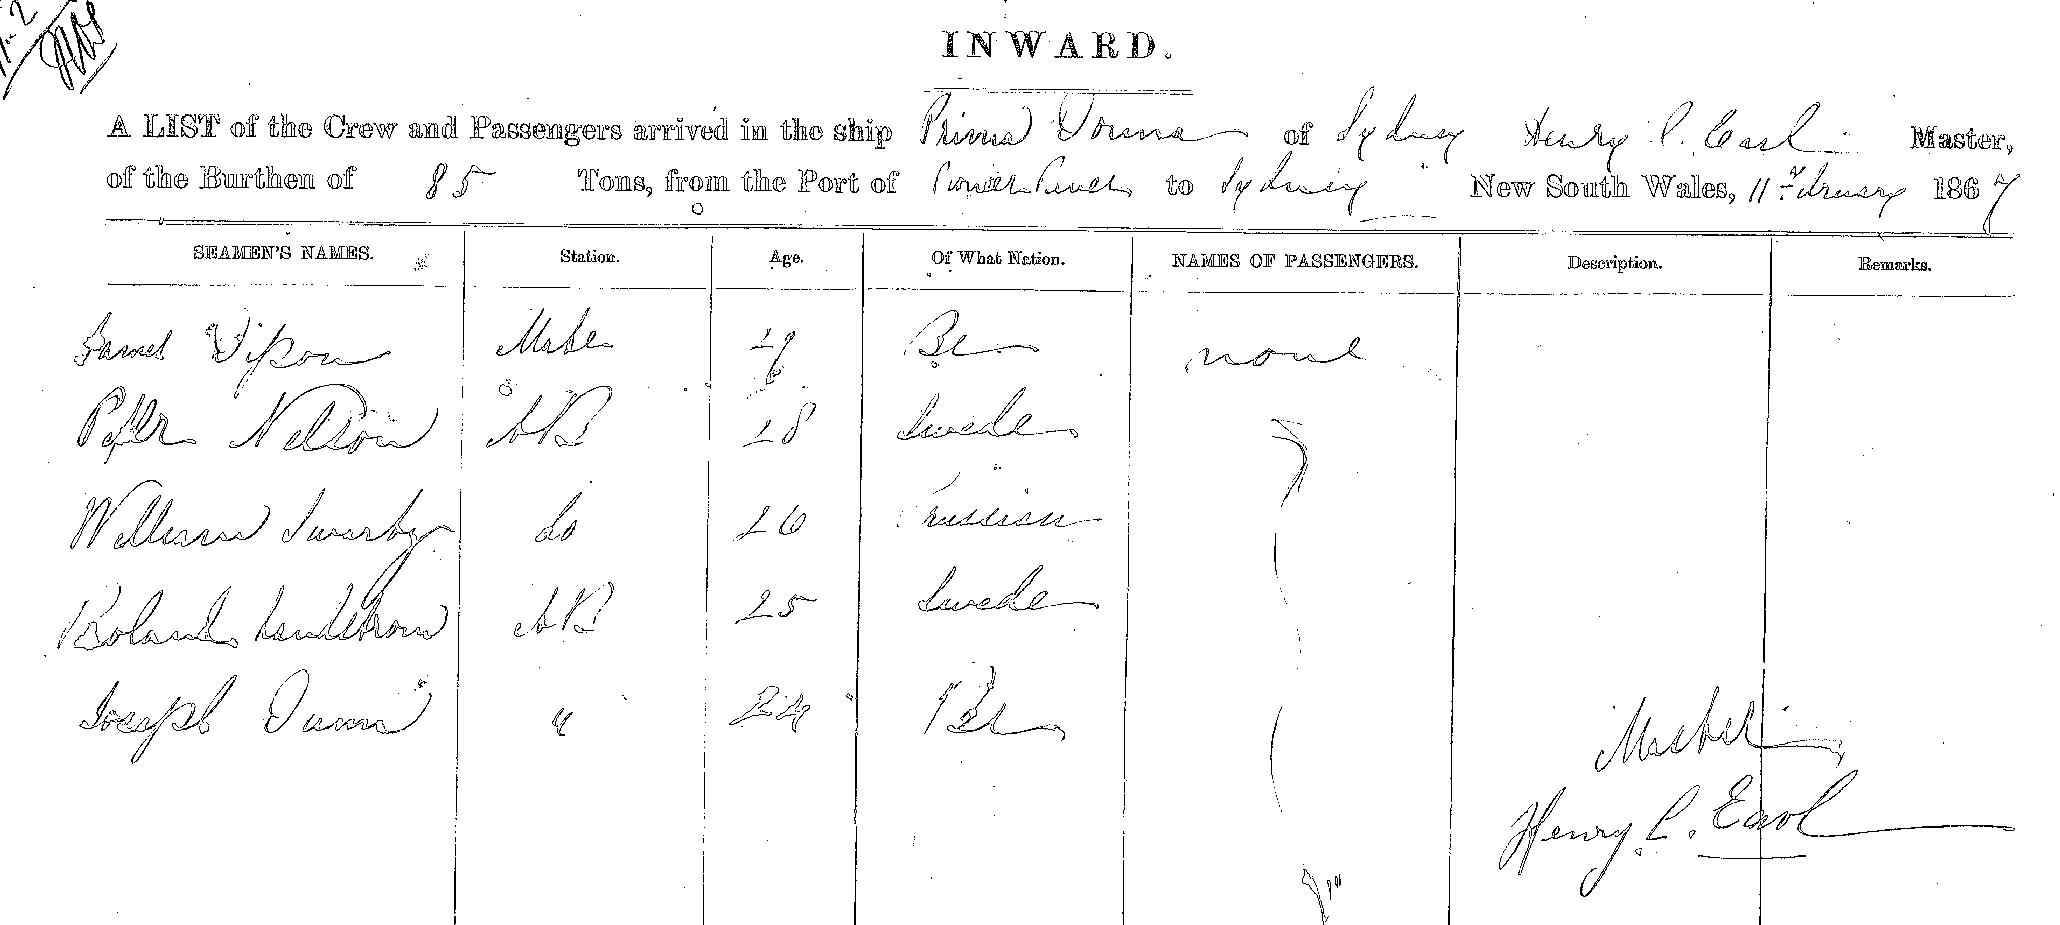 INWARD.
A LIST of the Crew and Passengers arrived in the ship Prima Donna of Sydney Henry C. Earl Master,
of the Burthen of 85 Tons, from the Port of to Sydney New South Wales, 11 1867
SEAMEN'S NAMES. Station. Age. Of What Nation. NAMES OF PASSENGERS. Description. Remarks.
James Mate 29 none
Peter Nelson AB 28 Swede
William Swarby do 26
Roland Lundstrom AB 25 Swede
Joseph Dunn " 24
Henry C. Earl